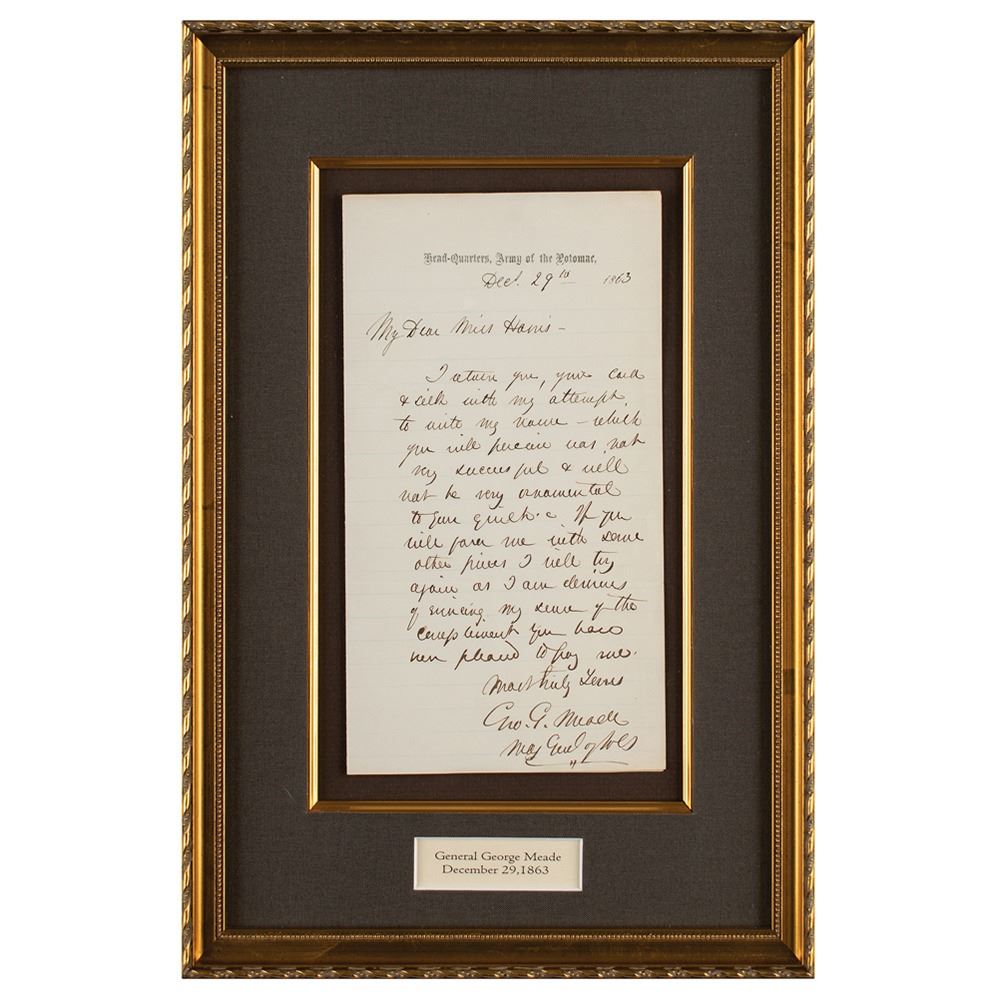 Head-Quarters, Army of the Potomac,
Dec. 29th 1863
My Dear Miss Harris -
I return you, your card
& silk with my attempt
to write my name - which
you will perceive was not
very successful & will
not be very ornamental
to your quilt. If you
will favor me with some
other pieces I will try
again as I am desirous
of evincing my sense of the
complement you have
been pleased to pay me.
Most truly Yours
Geo. G. Meade
Maj Genl of Vols
General George Meade
December 29,1863